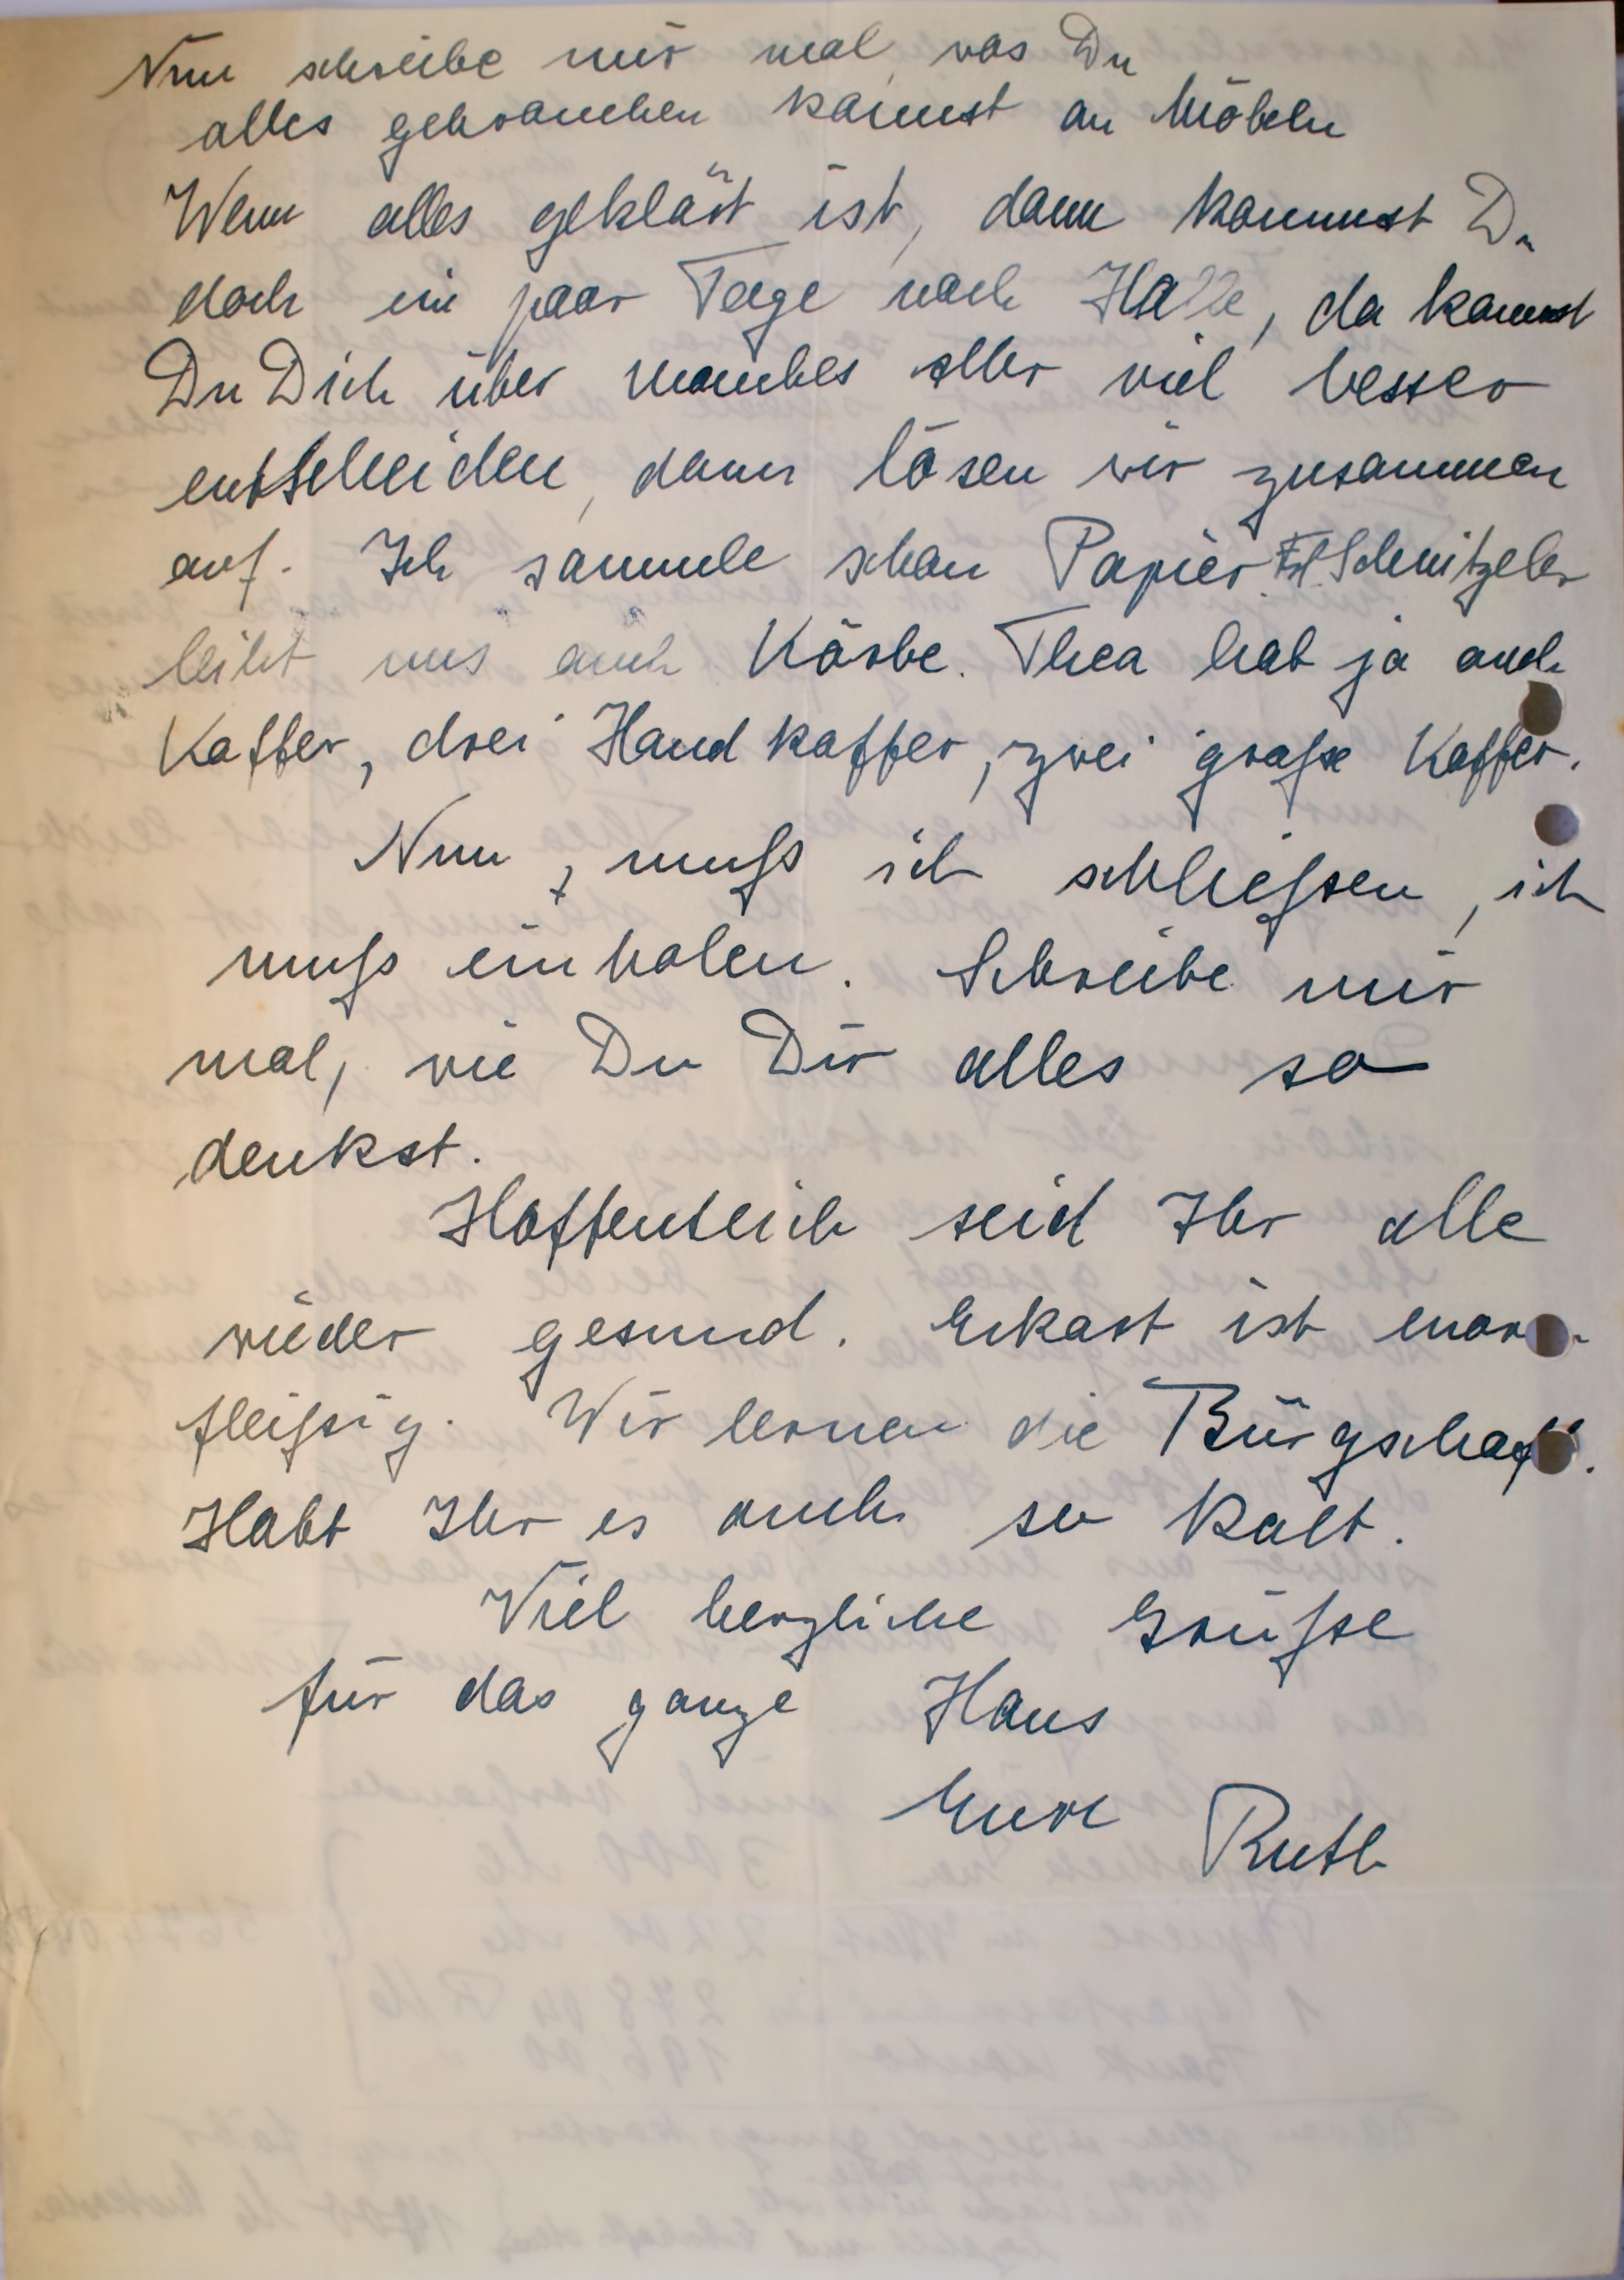 Nun schreibe mir mal, was Du
alles gebrauchen kannst an Möbeln
Wenn alles geklärt ist, dann kommst Du
doch ein paar Tage nach Halle, da kannst
Du Dich über manches aller viel besser
entscheiden, dann lösen wir zusammen
auf. Ich sammle schon Papier. Frl. Schnitzeler
leiht uns auch Körbe. Thea hat ja auch
Koffer, drei Handkoffer, zwei große Koffer.
Nun, muß ich schließen, ich
muß einholen. Schreibe mir
mal, wie Du Dir alles so
denkst.
Hoffentlich seid Ihr alle
wieder gesund. Eckart ist enorm
fleißig. Wir lernen die Bürgschaft.
Habt Ihr es auch so kalt.
Viel herzliche Grüße
für das ganze Haus
Eure Ruth